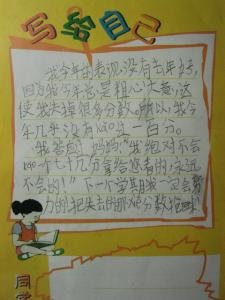 写给自己
我今年的表现没有去年好,
因为我今年总是粗心大意,这
使我去掉很多分数。所以,我今
年几乎没有kǎo过一百分。
我答应妈妈:"我绝对不会
kǎo个七十几分拿给您看的,永远
不会的!"下一个学期我一定会努
力的!把失去的那些分数
同学